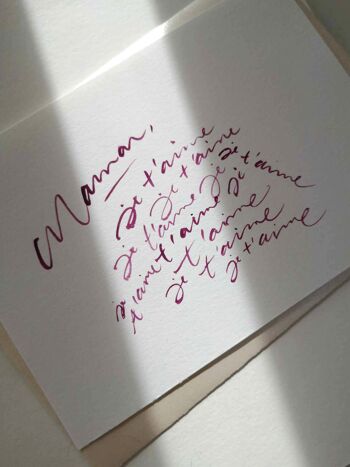 Maman,
je t'aime
je t'aime
je t'aime je t'aime
je t'aime je
t'aime je t'aime
je t'aime
je t'aime